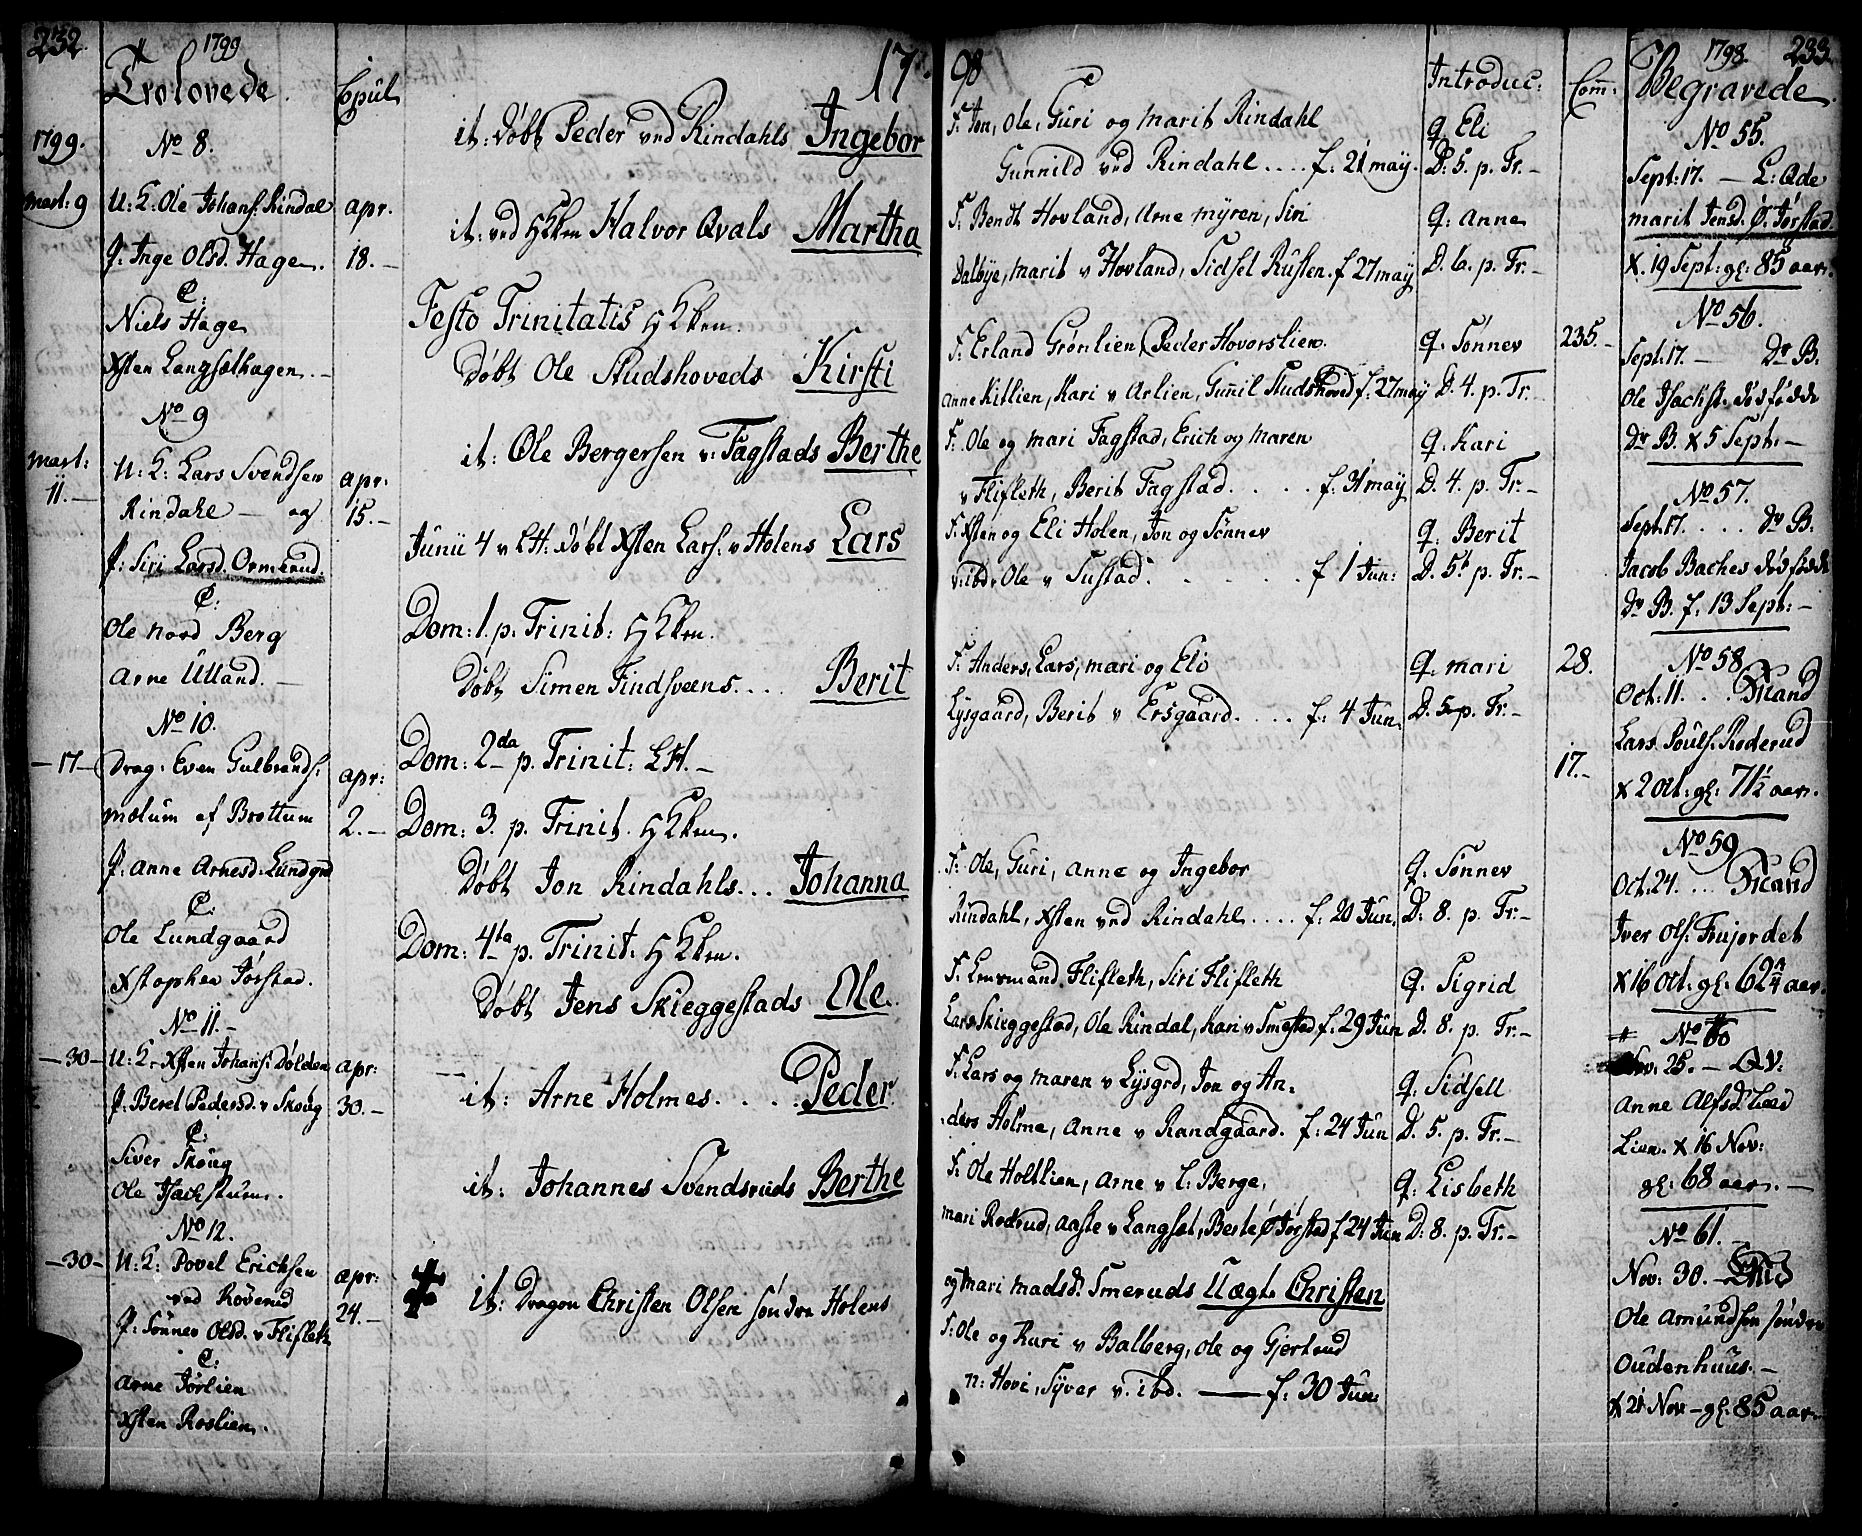 232.
1799
Trolovede.
Copul.
1799.
No 8.
Mart: 9
U: K. Ole Johans: Rindal
apr.
P: Inge Olsd. Hagen.
18.-
C:
Niels Hage
Xsten Langsæthagen.-
No 9
Mart: 11.-
U: K: Lars Svendsen
apr:
Rindahl - og
15.-
P: Siri Larsd. Ormerud.
C:
Ole nord Berg
Arne Utland.-
No 10.
-17-
Drag: Even Gulbrands:
apr:
Mælum af Brøttum
2.-
P: Anne Arnesd. Lundgrd
C:
Ole Lundgaard
Xstopher Jørstad.
No 11.-
-30-
U: K: Xsten Johans: Dølden
apr:
P: Beret Pedersd. v Skoug
30.-
C:
Siver Skoug
Ole
No 12.
-30-
U: K: Povel Erichsen
apr:
ved Røverud
24.-
P: Sønnev Olsd. v Flifleth
C:
Arne Jørlien
Xsten Roslien.
17
it: Døbt Peder ved Rindahls Ingebor
it: ved HKken Halvor Qvals Martha
Festo Trinitatis HKken.
Døbt Ole Studshoveds Kirsti
it: Ole Bergersen v: Fagstads Berthe
Junii 4 v LH: Døbt Xsten Lars: v Holens Lars
Dom: 1. p: Trinit: HKken.
Døbt Simen Findsveens.... Berit
Dom: 2da p. Trinit: LH.-
Dom: 3. p. Trinit. HKken.
Døbt Jon Rindahls... Johanna
Dom: 4ta p. Trinit. HKken.
Døbt Jens Skieggestads Ole.
it: Arne Holmes.... Peder
it: Johannes Svendsruds Berthe
it: Dragon Christen Olsen søndre Holens
98
Introduc:
Com:
F: Jon, Ole, Guri og Marit Rindahl
q. Eli
Gunnild ved Rindahl.... f: 21 May.
D: 5. p. Tr.-
F: Bendt Hovland, Arne Myren, Siri
q: Anne
Dalbye, Marit v Hovland, Sidsel Rusten. f 27 May
D. 6. p. Tr.-
F: Erland Grønlien, Peder Hovorslien.
q. Sønnev
235.-
Anne Kitlien, Kari v Arlien, Gunil Studshoved f: 27 May
D. 4. p. Tr.
F: Ole og Mari Fagstad, Erich og Maren
q: Kari
v Flifleth, Berit Fagstad.... f: 31 May
D. 4. p. Tr.-
F: Xsten og Eli Holen, Jon og Sønnev
q: Berit
v: ibd. Ole v Sustad...... f 1 Jun:
D. 5t p. Tr.-
F: Anders, Lars, Mari og Eli
q. Mari
28.
Lysgaard, Berit v Ersgaard.... f: 4 Jun.
D. 5 p. Tr.-
17.-
F: Ole, Guri, Anne og Ingebor
q. Sønnev
Rindahl, Xsten ved Rindahl.... f: 20 Jun.
D: 8. p. Tr.-
F. Lensmand Flifleth, Siri Flifleth
q. Sigrid
Lars Skieggestad, Ole Rindal, Kari v Smestad f: 29 Jun
D. 8. p. Tr.-
F: Lars og Maren v Lysgrd, Jon og An-
q: Sidsell
ders Holme, Anne v Randgaard. f: 24 Jun
D. 5. p. Tr.-
F: Ole Holtlien, Arne v L: Berge,
q: Lisbeth
Mari Roterud, Aaste v Langsæt, Berte Ø Jørstad f 24 Jun
D: 8. p. Tr.-
og Mari Madsd: Smeruds Uægte Christen
F: Ole og Kari v Balberg, Ole og Gjertrud
n: Hovi, Syver v. ibd. - f: 30 Jun:
1798.
233.
Begravede.
No 55.
Sept: 17. - L:
Marit Jensd. Ø: Jørstad.
X. 19 Sept: gl: 85 aar.
No 56.
Sept: 17. - Dr B.
Ole dødfødde
Dr B. X 5 Sept:-
No 57.
Sept: 17.... Dr B.
Jacob Baches dødfødde
Dr B. f. 13 Sept:-
No 58.
Oct: 11...
Lars Pouls: Roterud
X 2 Oct: gl: 71½ aar.
No 59
Oct. 24...
Iver Ols: Frujordet
X 16 Oct: gl: 62¾ aar.
No 60
Nov: 25. - QV:
Anne Alfsd.
Lien. X 16 Nov:
gl: 68 aar.-
No 61.
Nov: 30. -
Ole Amundsen søndre
Oudenhuus.-
X 21 Nov - gl: 85 aar.